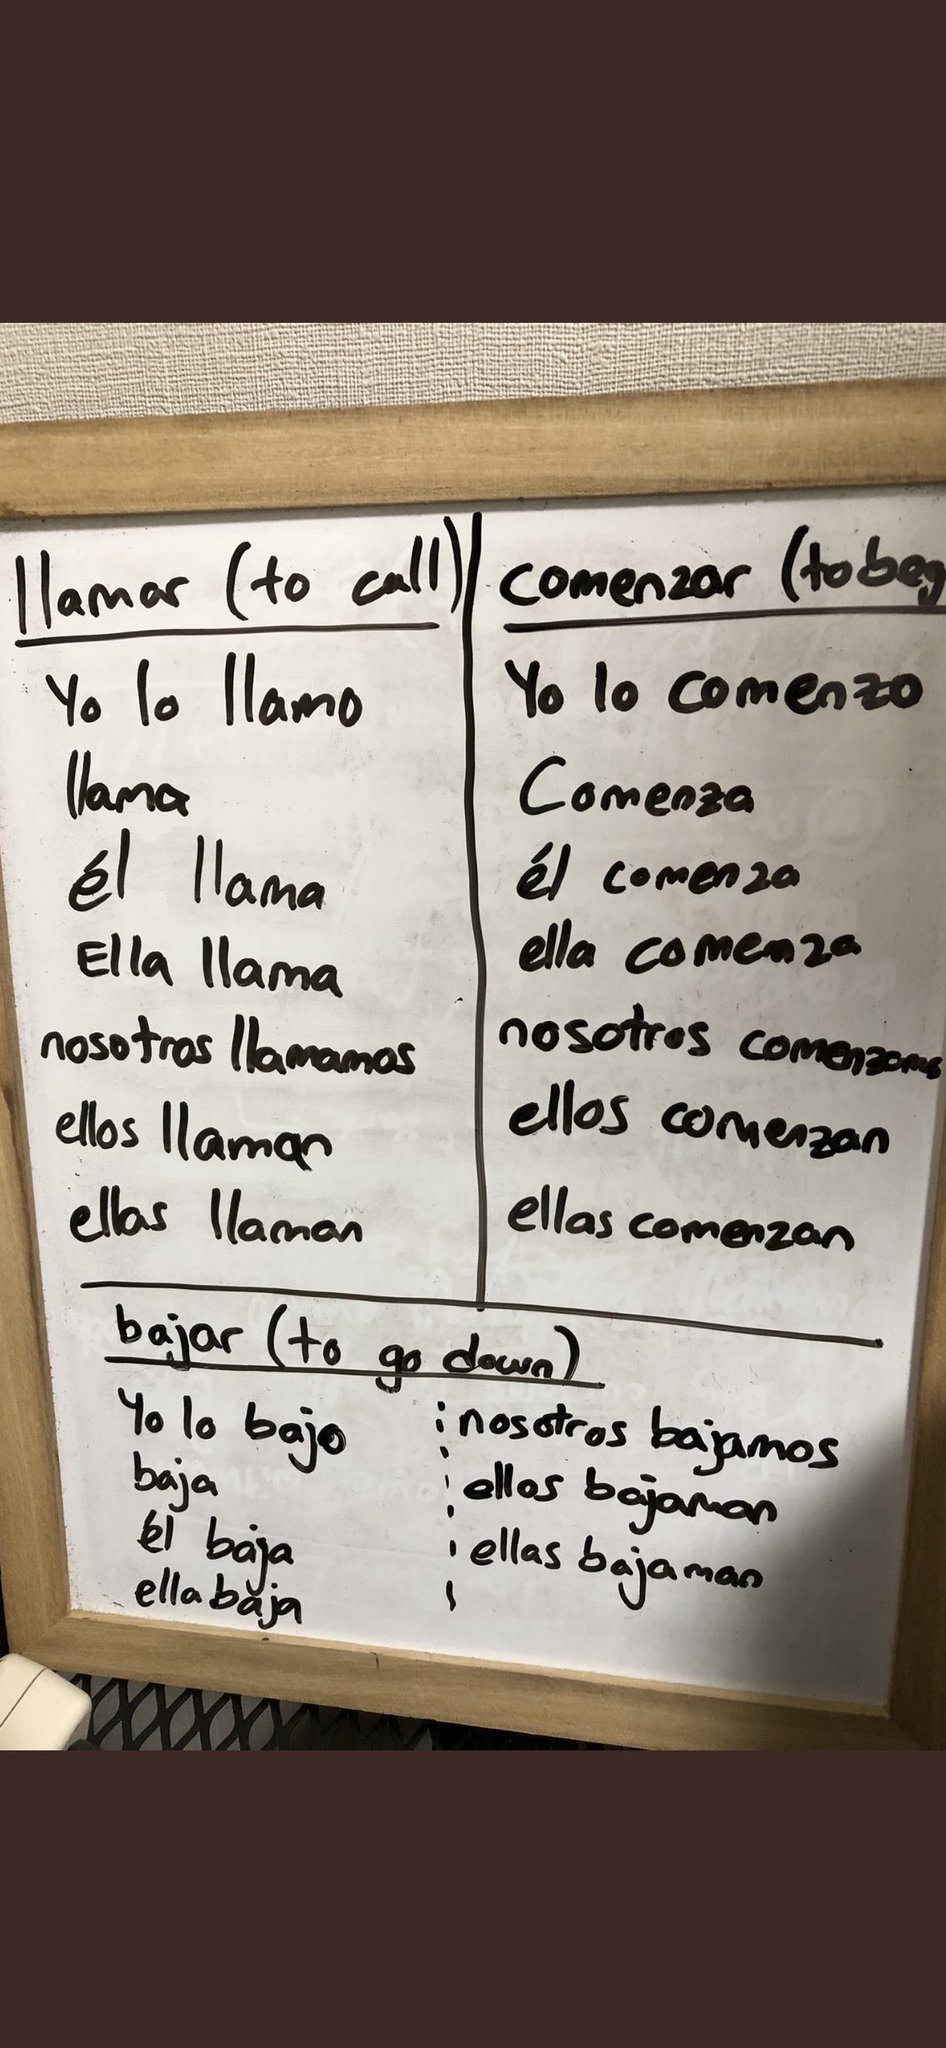 llamar (to call)
Yo lo llamo
llama
él llama
Ella llama
nosotros llamamos
ellos llaman
ellas llaman
comenzar (to beg
Yo lo comenzo
Comenza
él comenza
ella comenza
nosotros comenzamos
ellos comenzan
ellas comenzan
bajar (to go down)
Yo lo bajo
baja
él baja
ella baja
nosotros bajamos
ellos bajaman
ellas bajaman